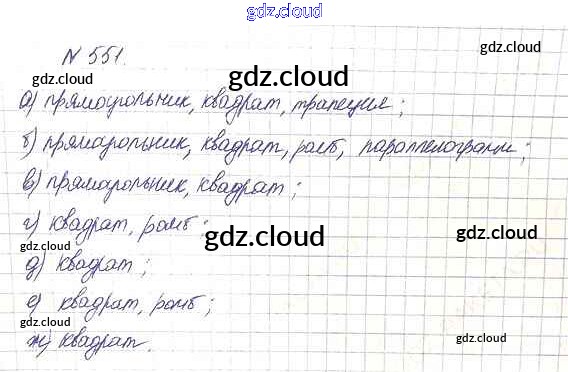 gdz.cloud
gdz.cloud
N 551.
gdz.cloud
gdz.cloud gdz.cloud
а) прямоугольник, квадрат, трапеция;
б) прямоугольник, квадрат, ромб, параллелограмм;
gdz.cloud gdz.cloud
в) прямоугольник, квадрат;
г) квадрат, ромб;
gdz.cloud gdz.cloud gdz.cloud
д) квадрат;
е) квадрат, ромб;
gdz.cloud gdz.cloud
ж) квадрат.